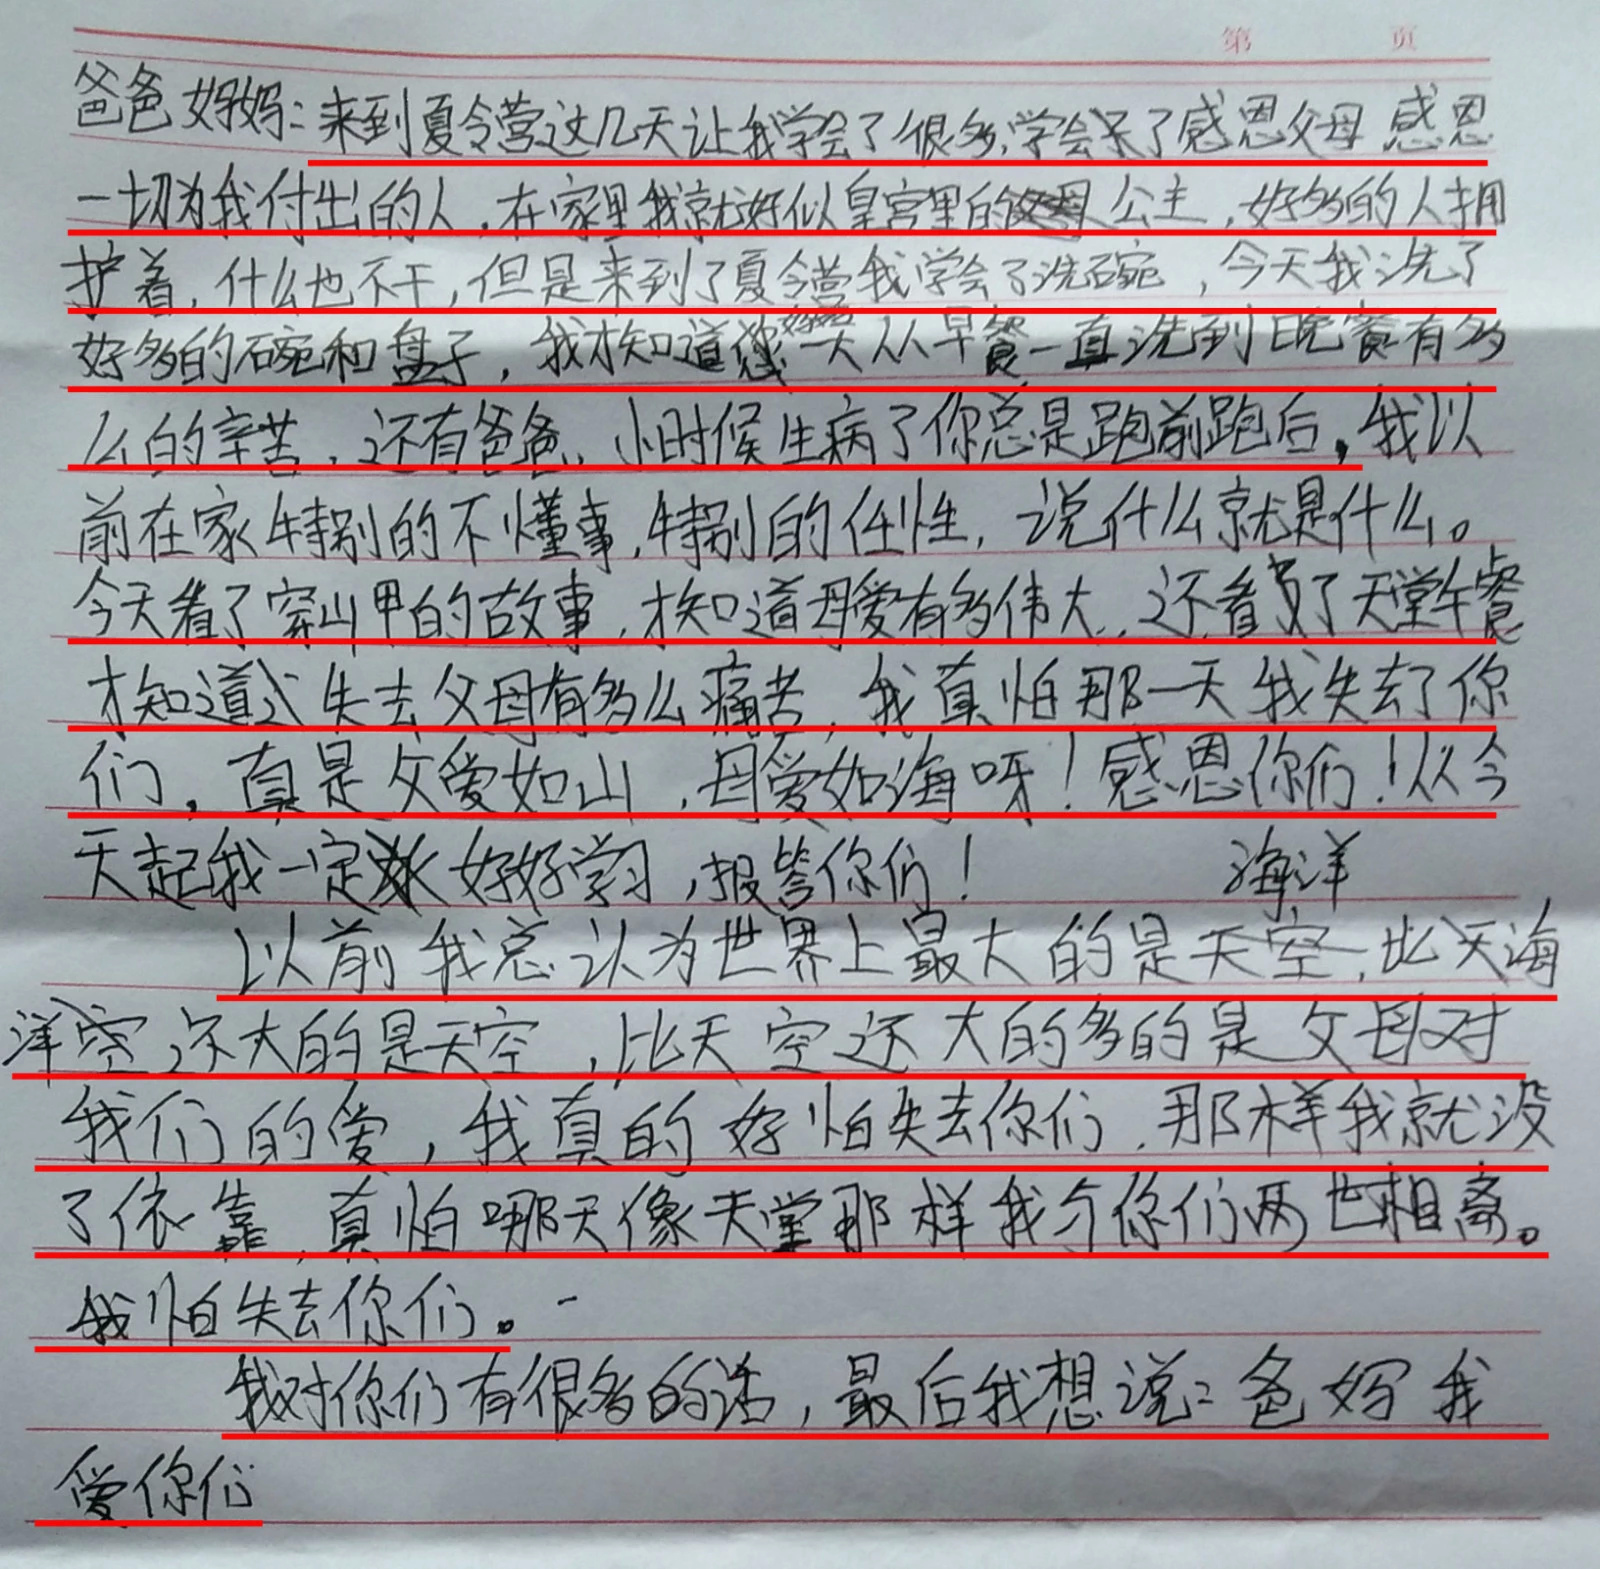 第 页
爸爸妈妈：来到夏令营这几天让我学会了很多，学会了感恩父母 感恩
一切为我付出的人，在家里我就好似皇宫里的公主，好多的人拥
护着，什么也不干，但是来到了夏令营我学会了洗碗，今天我洗了
好多的碗和盘子，我才知道妈妈一天从早餐一直洗到晚餐有多
么的辛苦，还有爸爸，小时候生病了你总是跑前跑后，我以
前在家特别的不懂事，特别的任性，说什么就是什么。
今天看了穿山甲的故事，才知道母爱有多伟大，还看了天堂午餐
才知道失去父母有多么痛苦，我真怕那一天我失去了你
们，真是父爱如山，母爱如海呀！感恩你们！从今
天起我一定好好学习，报答你们！
海洋
以前我总认为世界上最大的是天空，比海
洋还大的是天空，比天空还大的多的是父母对
我们的爱，我真的好怕失去你们，那样我就没
了依靠，真怕哪天像天堂那样我与你们两世相离。
我怕失去你们。
我对你们有很多的话，最后我想说：爸妈我
爱你们